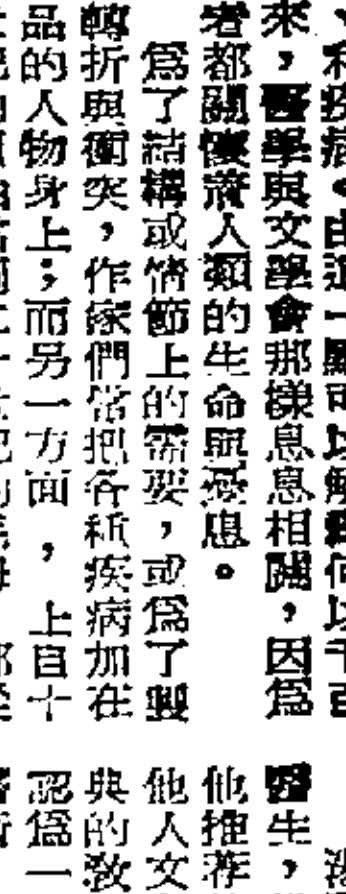 、和疾病。由這一點可以解釋何以千百
來，醫學與文學會那樣息息相關，因爲
者都關懷著人類的生命與憂患。
爲了結構或情節上的需要，或爲了製
轉折與衝突，作家們常把各種疾病加在
品的人物身上；而另一方面，上自十
醫生，
他推荐
他人文
典的教
認爲一